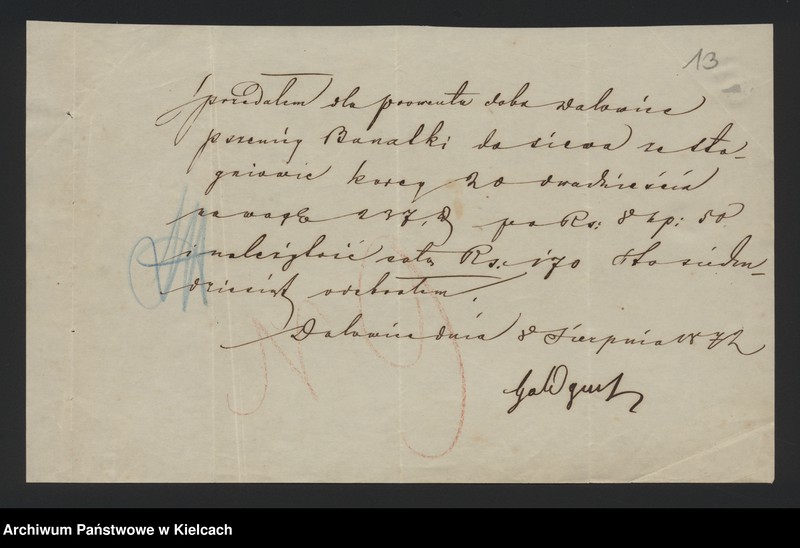 13
Sprzedałem dla prowentu dóbr Dałowice
pszenicy Banatki do siewu ze Sta-
gniowic korcy 20 dwadzieścia
na wagę 237 po Rs: 8 kp: 50
i należytość całą Rs: 170 Sto siedm-
dziesiąt odebrałem,
Dałowice dnia 8 Sierpnia 1872
Archiwum Państwowe w Kielcach